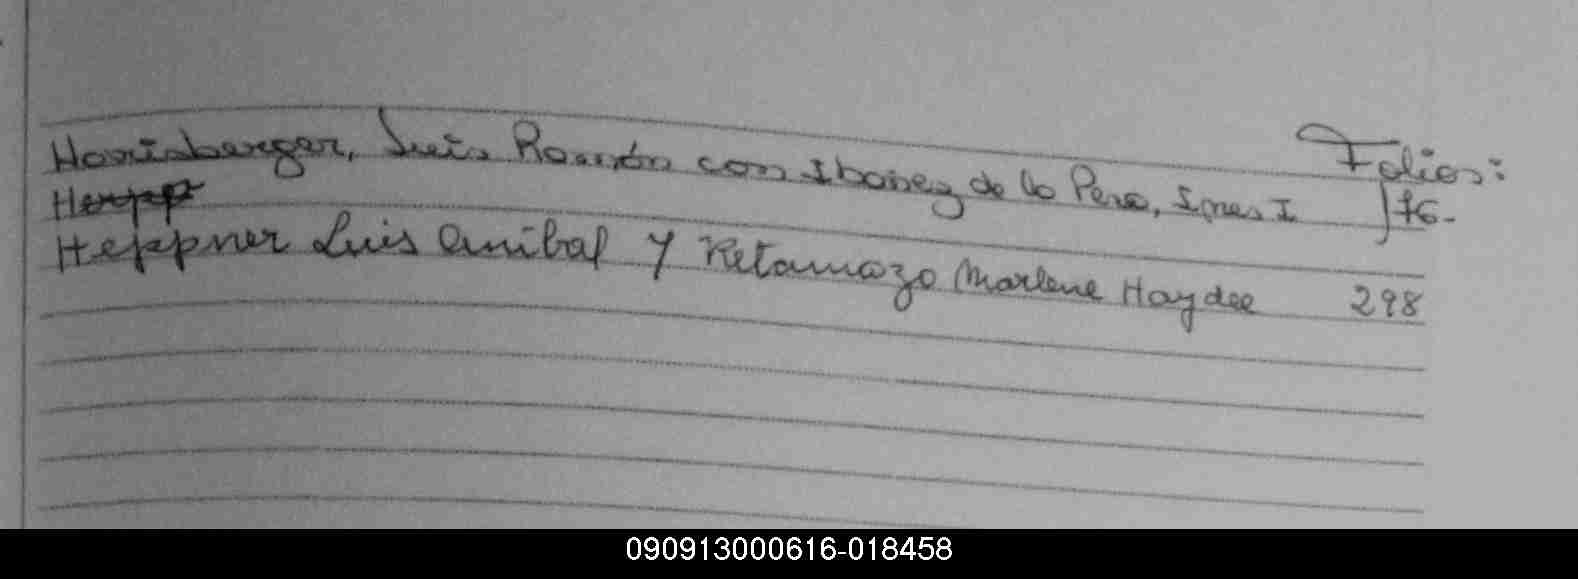 Folios:
Harisberger, Luis Ramón con Ibañez de la Pera, Ines I 176-
Heppner Luis Anibal y Retamozo Marlene Haydee 298
090913000616-018458